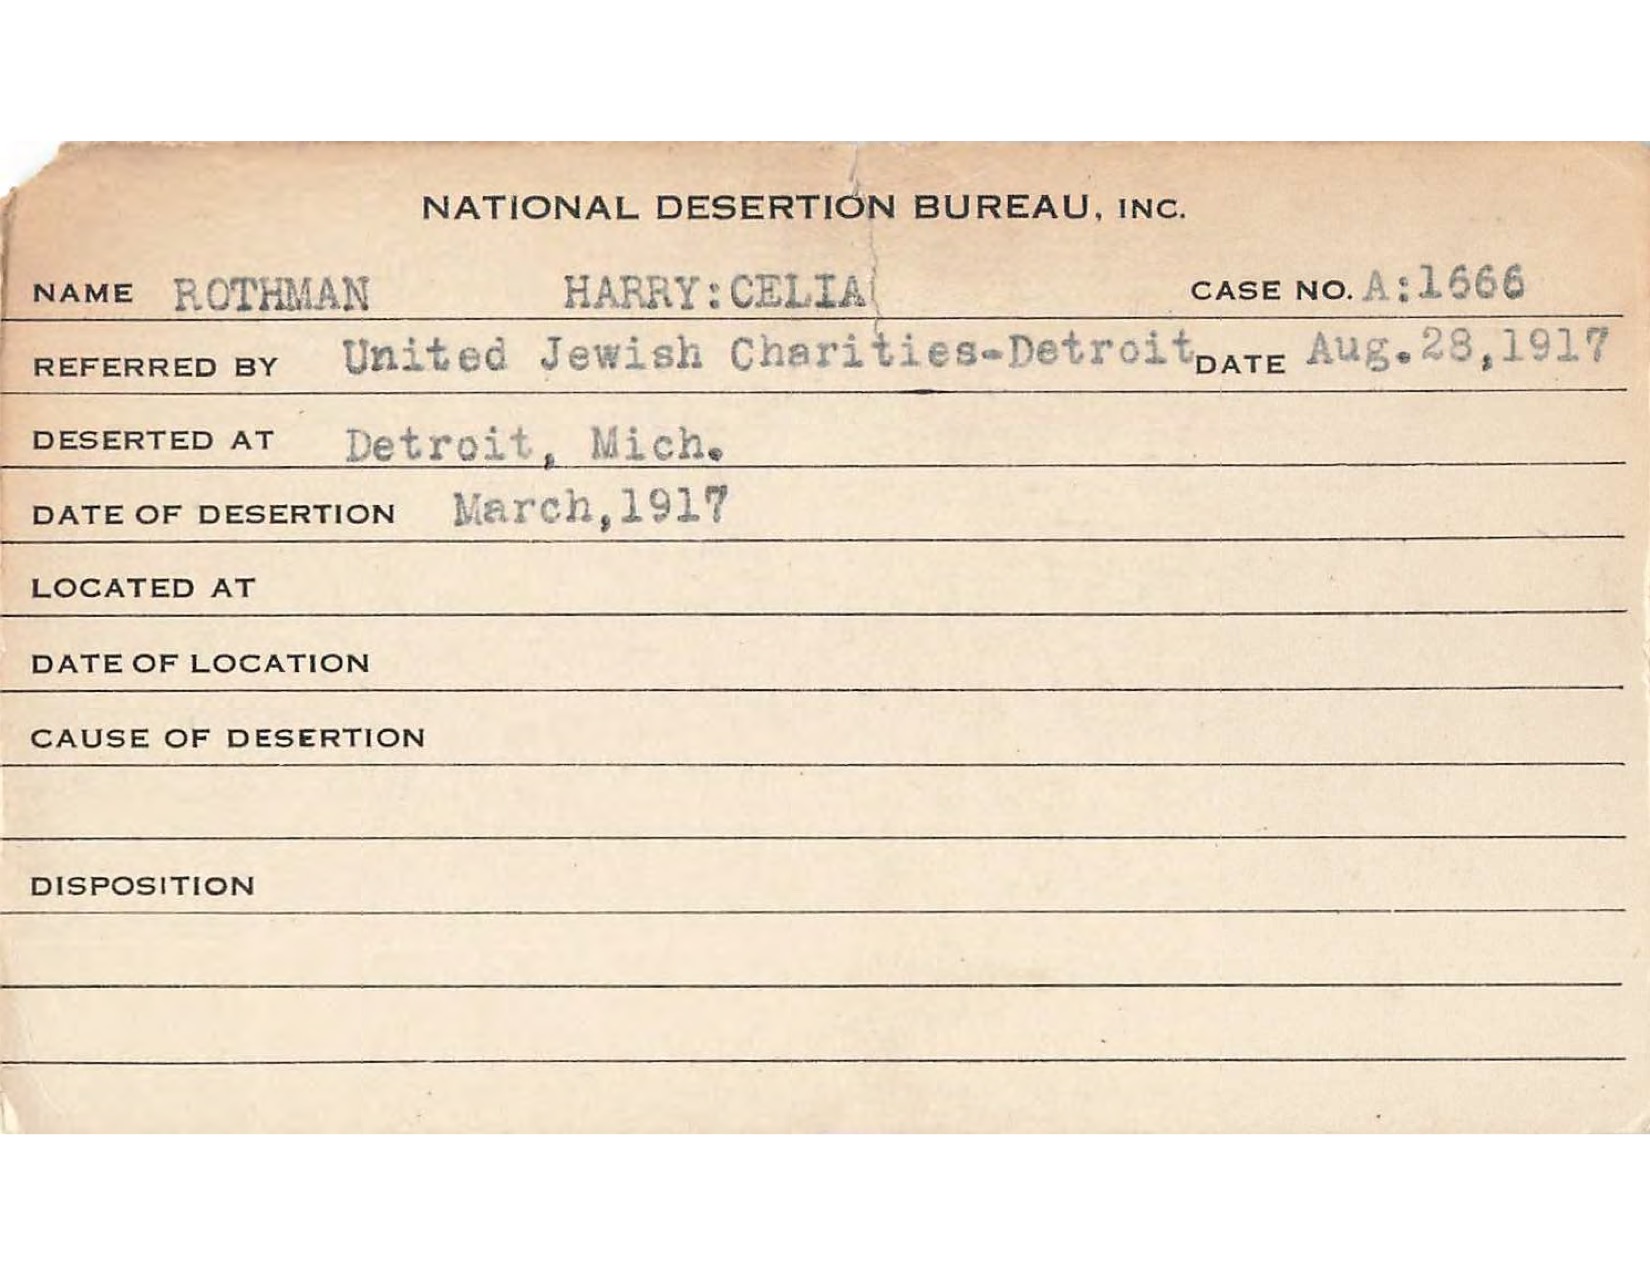 NATIONAL DESERTION BUREAU, INC.
NAME ROTHMAN HARRY:CELIA CASE NO. A:1666
REFERRED BY United Jewish Charities-Detroit DATE Aug.28,1917
DESERTED AT Detroit, Mich.
DATE OF DESERTION March,1917
LOCATED AT
DATE OF LOCATION
CAUSE OF DESERTION
DISPOSITION